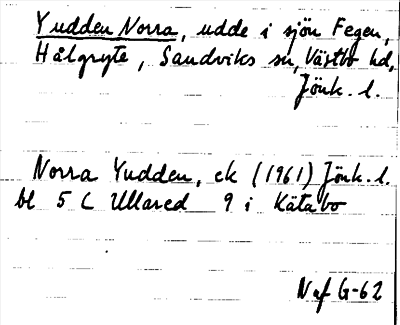 Yudden Norra, udde i sjön Fegen,
Hålgryte, Sandviks sn, Västbo hd,
Jönk. l.
Norra Yudden, ek (1961) Jönk. l.
bl 5 C Ullared 9 i Kätabo
Naf G-62